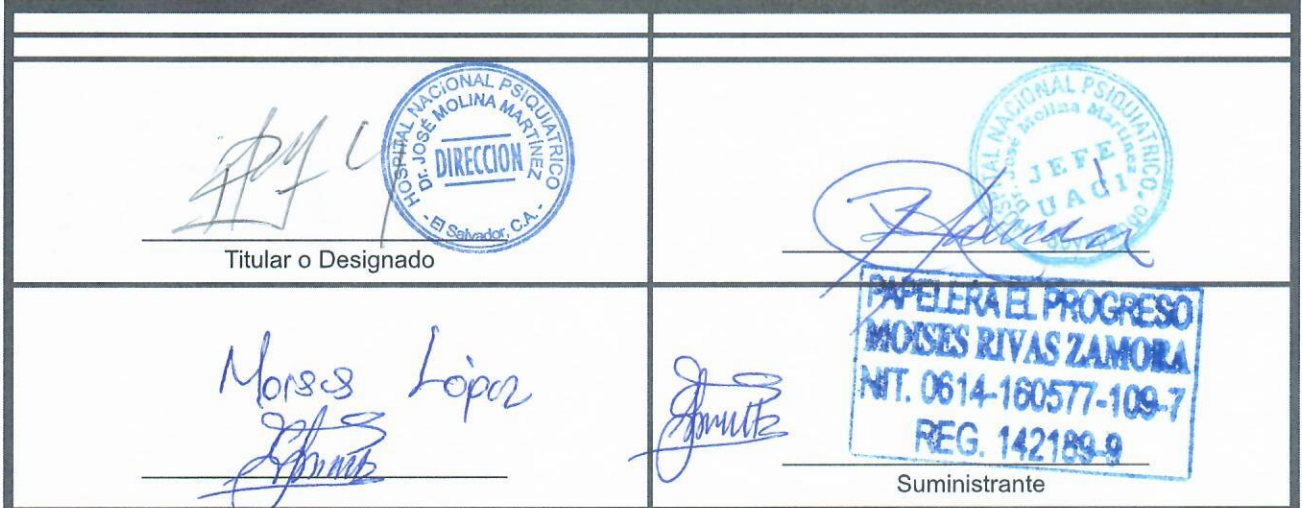 HOSPITAL NACIONAL PSIQUIATRICO
Dr. JOSÉ MOLINA MARTÍNEZ
DIRECCION
- El Salvador, C.A. -
Titular o Designado
NACIONAL PSIQUIATRICO
Dr. José Molina Martinez
JEFE
UACI
Moises López
PAPELERA EL PROGRESO
MOISES RIVAS ZAMORA
NIT. 0614-160577-109-7
REG. 142189-9
Suministrante